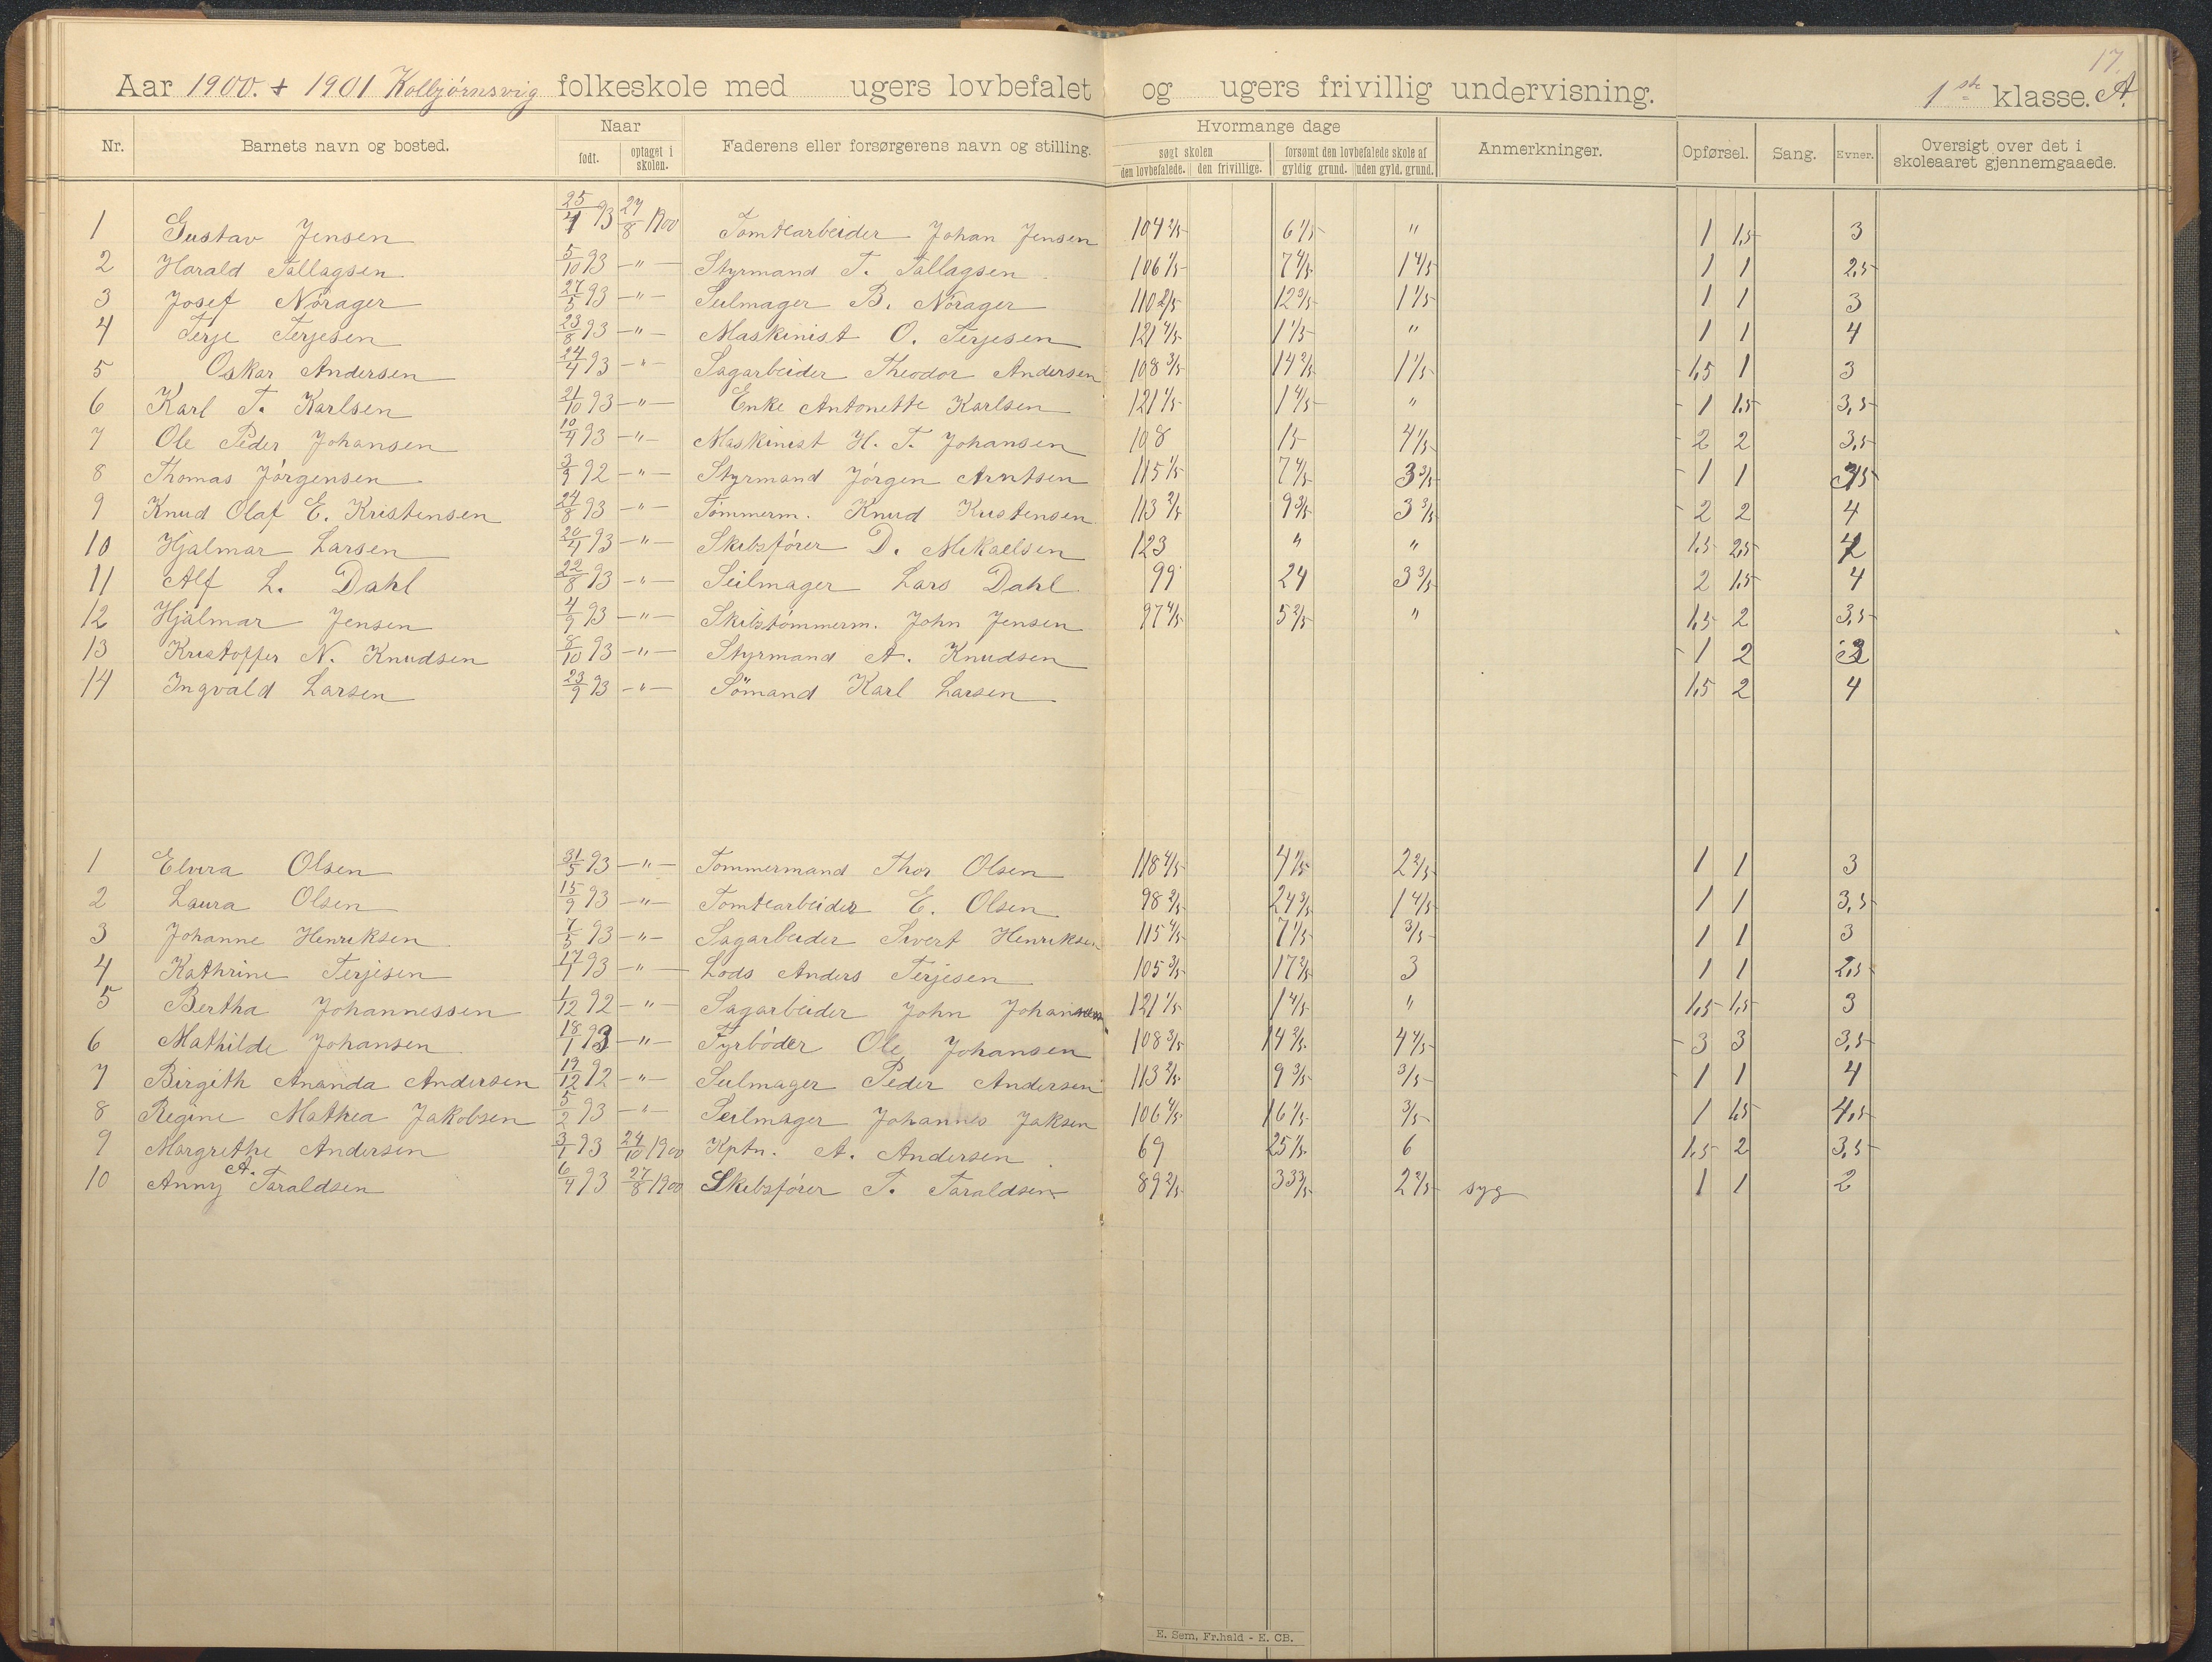 17.
Aar 1900. + 1901 Kolbjørnsvig folkeskole med ugers lovbefalet og ugers frivillig undervisning. 1ste klasse. A.
Nr. Barnets navn og bosted. Naar født. optaget i skolen. Faderens eller forsørgerens navn og stilling. Hvormange dage søgt skolen den lovbefalede. den frivillige. forsømt den lovbefalede skole af gyldig grund. uden gyld. grund. Anmerkninger. Opførsel. Sang. Evner. Oversigt over det i skoleaaret gjennemgaaede.
1 Gustav Jensen 25/4 93 27/8 1900 Tomtearbeider Johan Jensen 104 2/5 6 1/5 " 1 1,5 3
2 Harald Tallagsen 5/10 93 — " — Styrmand T. Tallagsen 106 1/5 7 4/5 1 4/5 1 1 2,5
3 Josef Nörager 27/5 93 — " — Seilmager B. Nörager 110 2/5 12 3/5 1 1/5 1 1 3
4 Terje Terjesen 23/8 93 — " — Maskinist O. Terjesen 121 4/5 1 1/5 " 1 1 4
5 Oskar Andersen 24/4 93 — " Sagarbeider Theodor Andersen 108 3/5 14 2/5 1 1/5 1,5 1 3
6 Karl T. Karlsen 21/10 93 — " — Enke Antonette Karlsen 121 1/5 1 4/5 " 1 1,5 3,5
7 Ole Peder Johansen 10/4 93 — " — Maskinist H. T. Johansen 108 15 4 1/5 2 2 3,5
8 Thomas Jörgensen 3/9 92 — " — Styrmand Jörgen Arntsen 115 1/5 7 4/5 3 3/5 1 1
9 Knud Olaf E. Kristensen 24/8 93 — " — Tömmerm. Knud Kristensen 113 2/5 9 3/5 3 3/5 2 2 4
10 Hjalmar Larsen 20/4 93 — " — Skibsförer D. Mikaelsen 123 " " 1,5 2,5
11 Alf L. Dahl 22/8 93 — " — Seilmager Lars Dahl 99 24 3 3/5 2 1,5 4
12 Hjalmar Jensen 4/9 93 — " — Skibstömmerm. John Jensen 97 4/5 5 2/5 " 1,5 2 3,5
13 Kristoffer N. Knudsen 8/10 93 — " — Styrmand A. Knudsen 1 2 3
14 Ingvald Larsen 23/9 93 — " — Sömand Karl Larsen 1,5 2 4
1 Elvira Olsen 31/5 93 — " — Tömmermand Thor Olsen 118 4/5 4 1/5 2 2/5 1 1 3
2 Laura Olsen 15/9 93 — " — Tomtearbeider E. Olsen 98 2/5 24 3/5 1 4/5 1 1 3,5
3 Johanne Henriksen 7/5 93 — " — Sagarbeider Sivert Henriksen 115 4/5 7 1/5 3/5 1 1 3
4 Kathrine Terjesen 17/1 93 — " — Lods Anders Terjesen 105 3/5 17 2/5 3 1 1 2,5
5 Bertha Johannessen 1/12 92 — " — Sagarbeider John Johannessen 121 1/5 1 4/5 " 1,5 1,5 3
6 Mathilde Johansen 18/1 93 — " — Fyrböder Ole Johansen 108 3/5 14 2/5 4 4/5 3 3 3,5
7 Birgith Ananda Andersen 19/12 92 — " — Seilmager Peder Andersen 113 2/5 9 3/5 3/5 1 1 4
8 Regine Mathea Jakobsen 5/2 93 — " — Seilmager Johannes Jaksen 106 4/5 16 1/5 3/5 1 1,5 4,5
9 Margrethe Andersen 3/1 93 24/10 1900 Kptn. A. Andersen 69 25 1/5 6 1,5 2 3,5
10 Anny A. Taraldsen 6/4 93 27/8 1900 Skibsförer T. Taraldsen 89 2/5 33 3/5 2 2/5 syg 1 1 2
E. Sem, Fr.hald - E. CB.